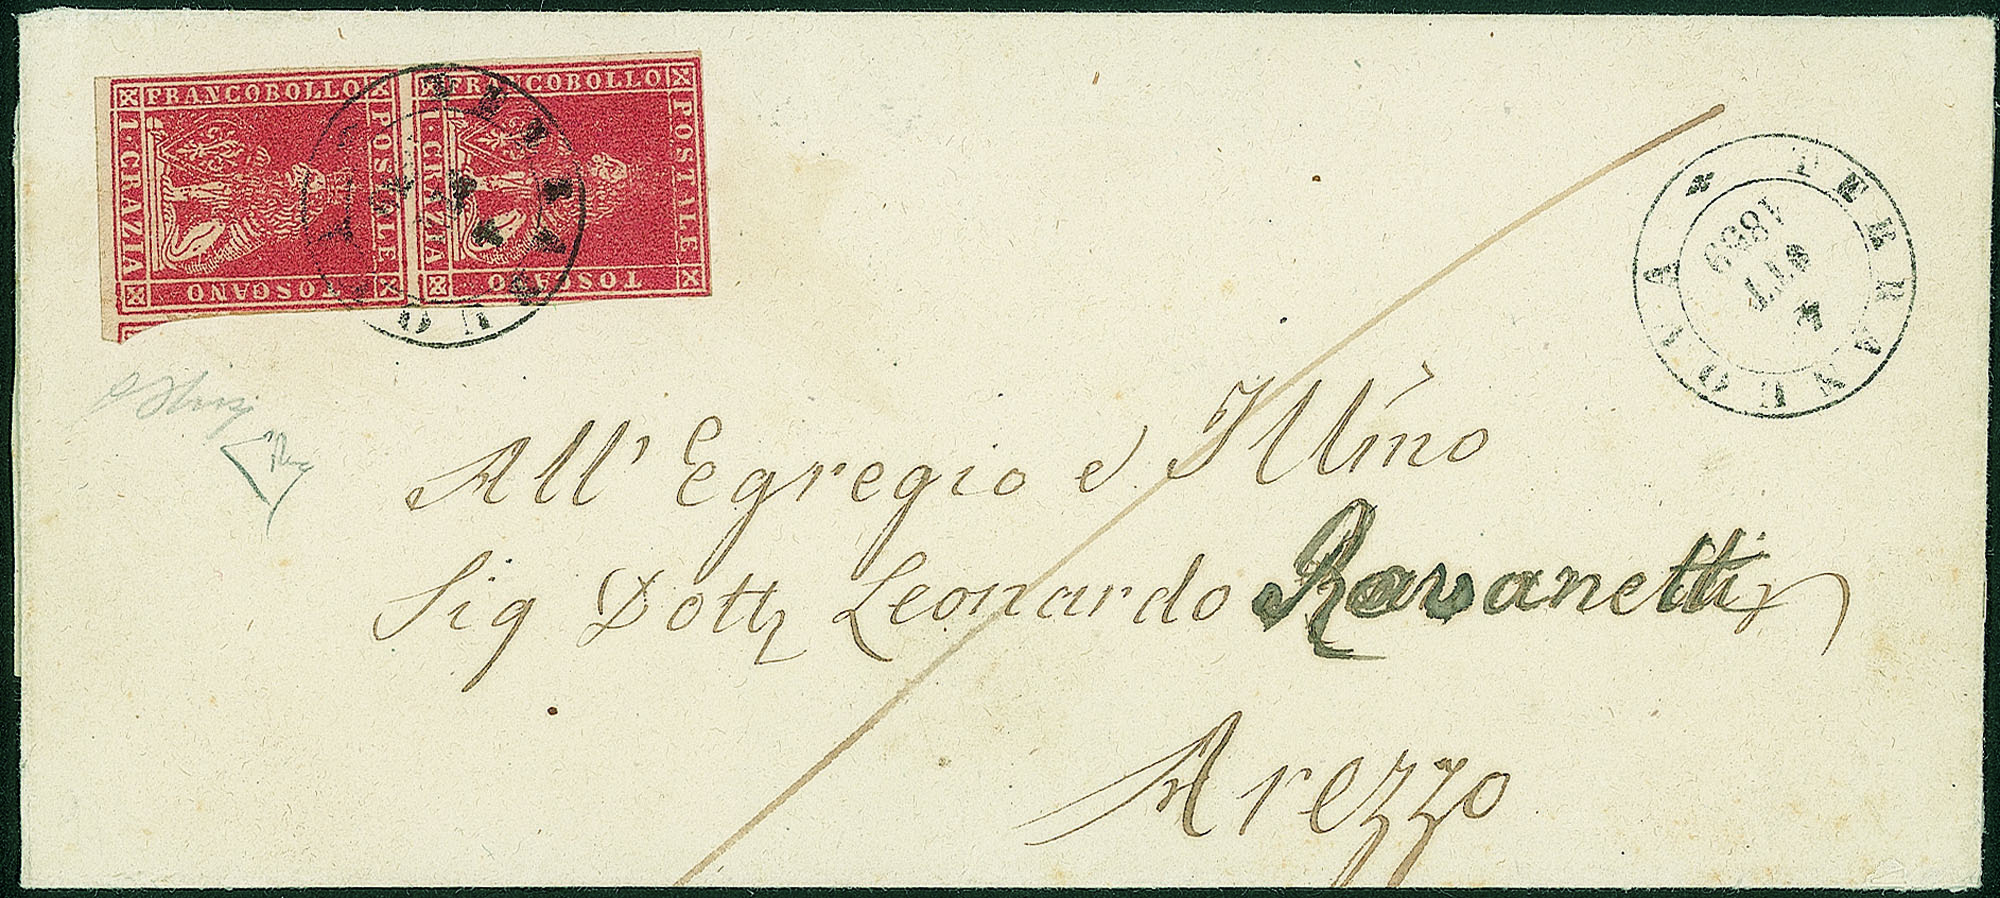 FRANCOBOLLO
POSTALE
TOSCANO
1·CRAZIA
FRANCOBOLLO
POSTALE
TOSCANO
1·CRAZIA
TERRANUOVA
4 OTT 1859
All' Egregio e Illmo
Sig Dott Leonardo Ravanetti
Arezzo